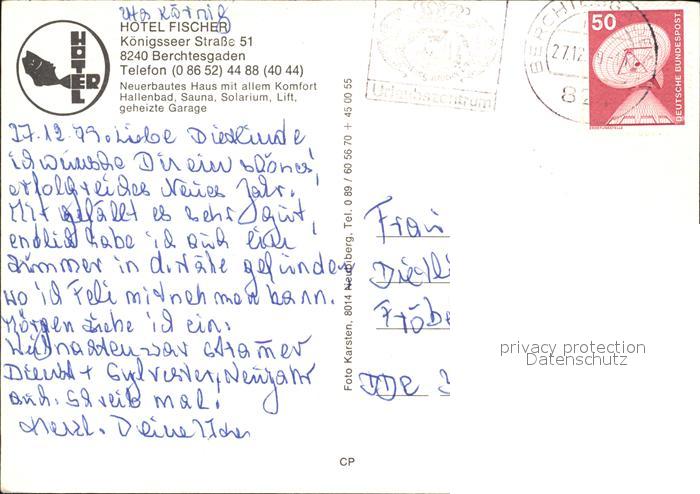 HOTEL
HOTEL FISCHER
Königsseer Straße 51
8240 Berchtesgaden
Telefon (0 86 52) 44 88 (40 44)
Neuerbautes Haus mit allem Komfort
Hallenbad, Sauna, Solarium, Lift,
geheizte Garage
27.12.79. Liebe Dietlinde,
ich wünsche Dir ein schönes,
erfolgreiches Neues Jahr.
Mir gefällt es sehr gut,
endlich habe ich auch ein
Zimmer in d. Nähe gefunden
wo ich Feli mitnehmen kann.
Morgen ziehe ich ein.
Weihnachten war strammer
Dienst + Sylvester, Neujahr
auch. Schreib mal.
Herzl. Deine
Foto Karsten, 8014 Neubiberg, Tel. 0 89 / 60 56 70 + 45 00 55
CP
Urlaubszentrum
BERCHTESGADEN
27.12
50
DEUTSCHE BUNDESPOST
ERDEFUNKSTELLE
Frau
DDR
privacy protection
Datenschutz